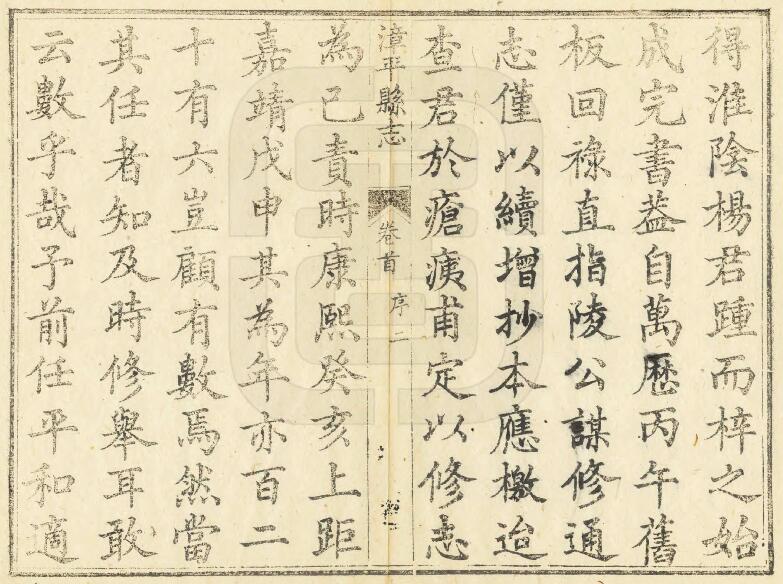 得淮陰楊君踵而梓之始
成完書蓋自萬歷丙午舊
板回祿直指陵公謀修通
志僅以續增抄本應檄迨
查君於瘡痍甫定以修志
漳平縣志
卷首
序
二
為己責時康熙癸亥上距
嘉靖戊申其為年亦百二
十有六豈顧有數焉然當
其任者知及時修舉耳敢
云數乎哉予前任平和適